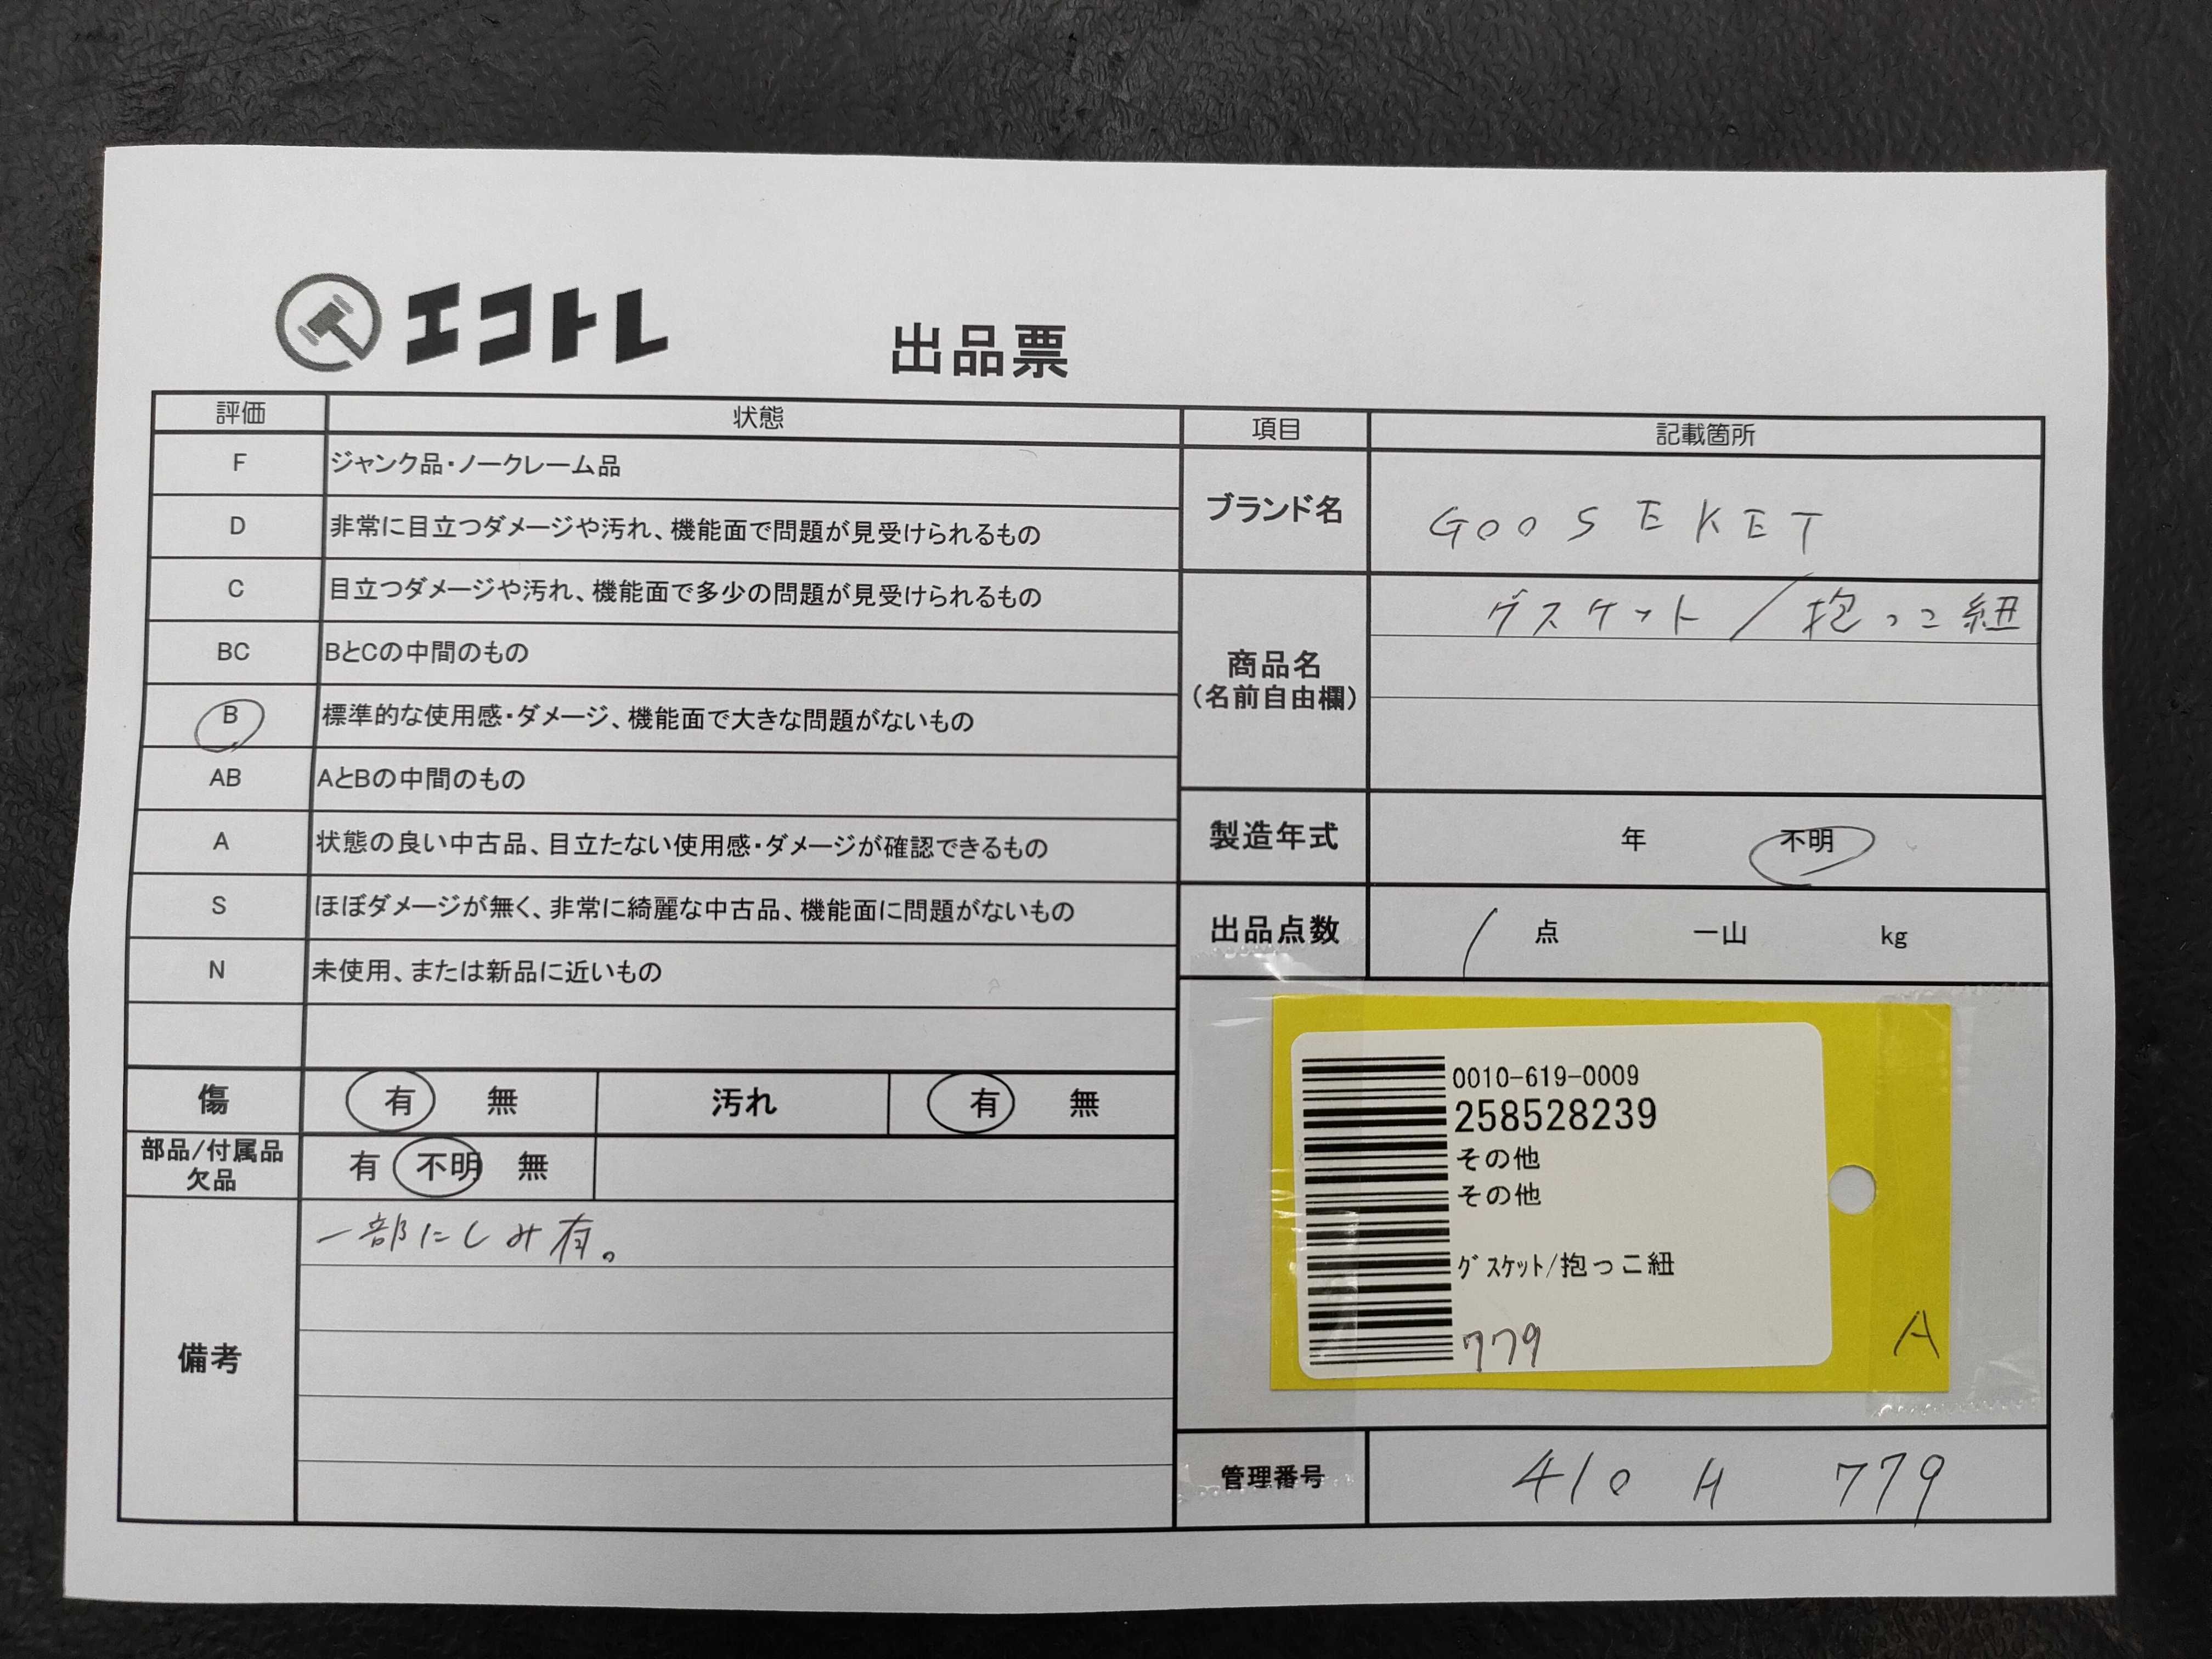 エコトレ
出品票
評価 状態
F ジャンク品・ノークレーム品
D 非常に目立つダメージや汚れ、機能面で問題が見受けられるもの
C 目立つダメージや汚れ、機能面で多少の問題が見受けられるもの
BC BとCの中間のもの
B 標準的な使用感・ダメージ、機能面で大きな問題がないもの
AB AとBの中間のもの
A 状態の良い中古品、目立たない使用感・ダメージが確認できるもの
S ほぼダメージが無く、非常に綺麗な中古品、機能面に問題がないもの
N 未使用、または新品に近いもの
傷 有 無 汚れ 有 無
部品/付属品
欠品
有 不明 無
備考
一部にしみ有。
項目 記載箇所
ブランド名 GOOSEKET
商品名
(名前自由欄)
グスケット/抱っこ紐
製造年式 年 不明
出品点数 1 点 一山 kg
0010-619-0009
258528239
その他
その他
グスケット/抱っこ紐
779
A
管理番号 410 H 779